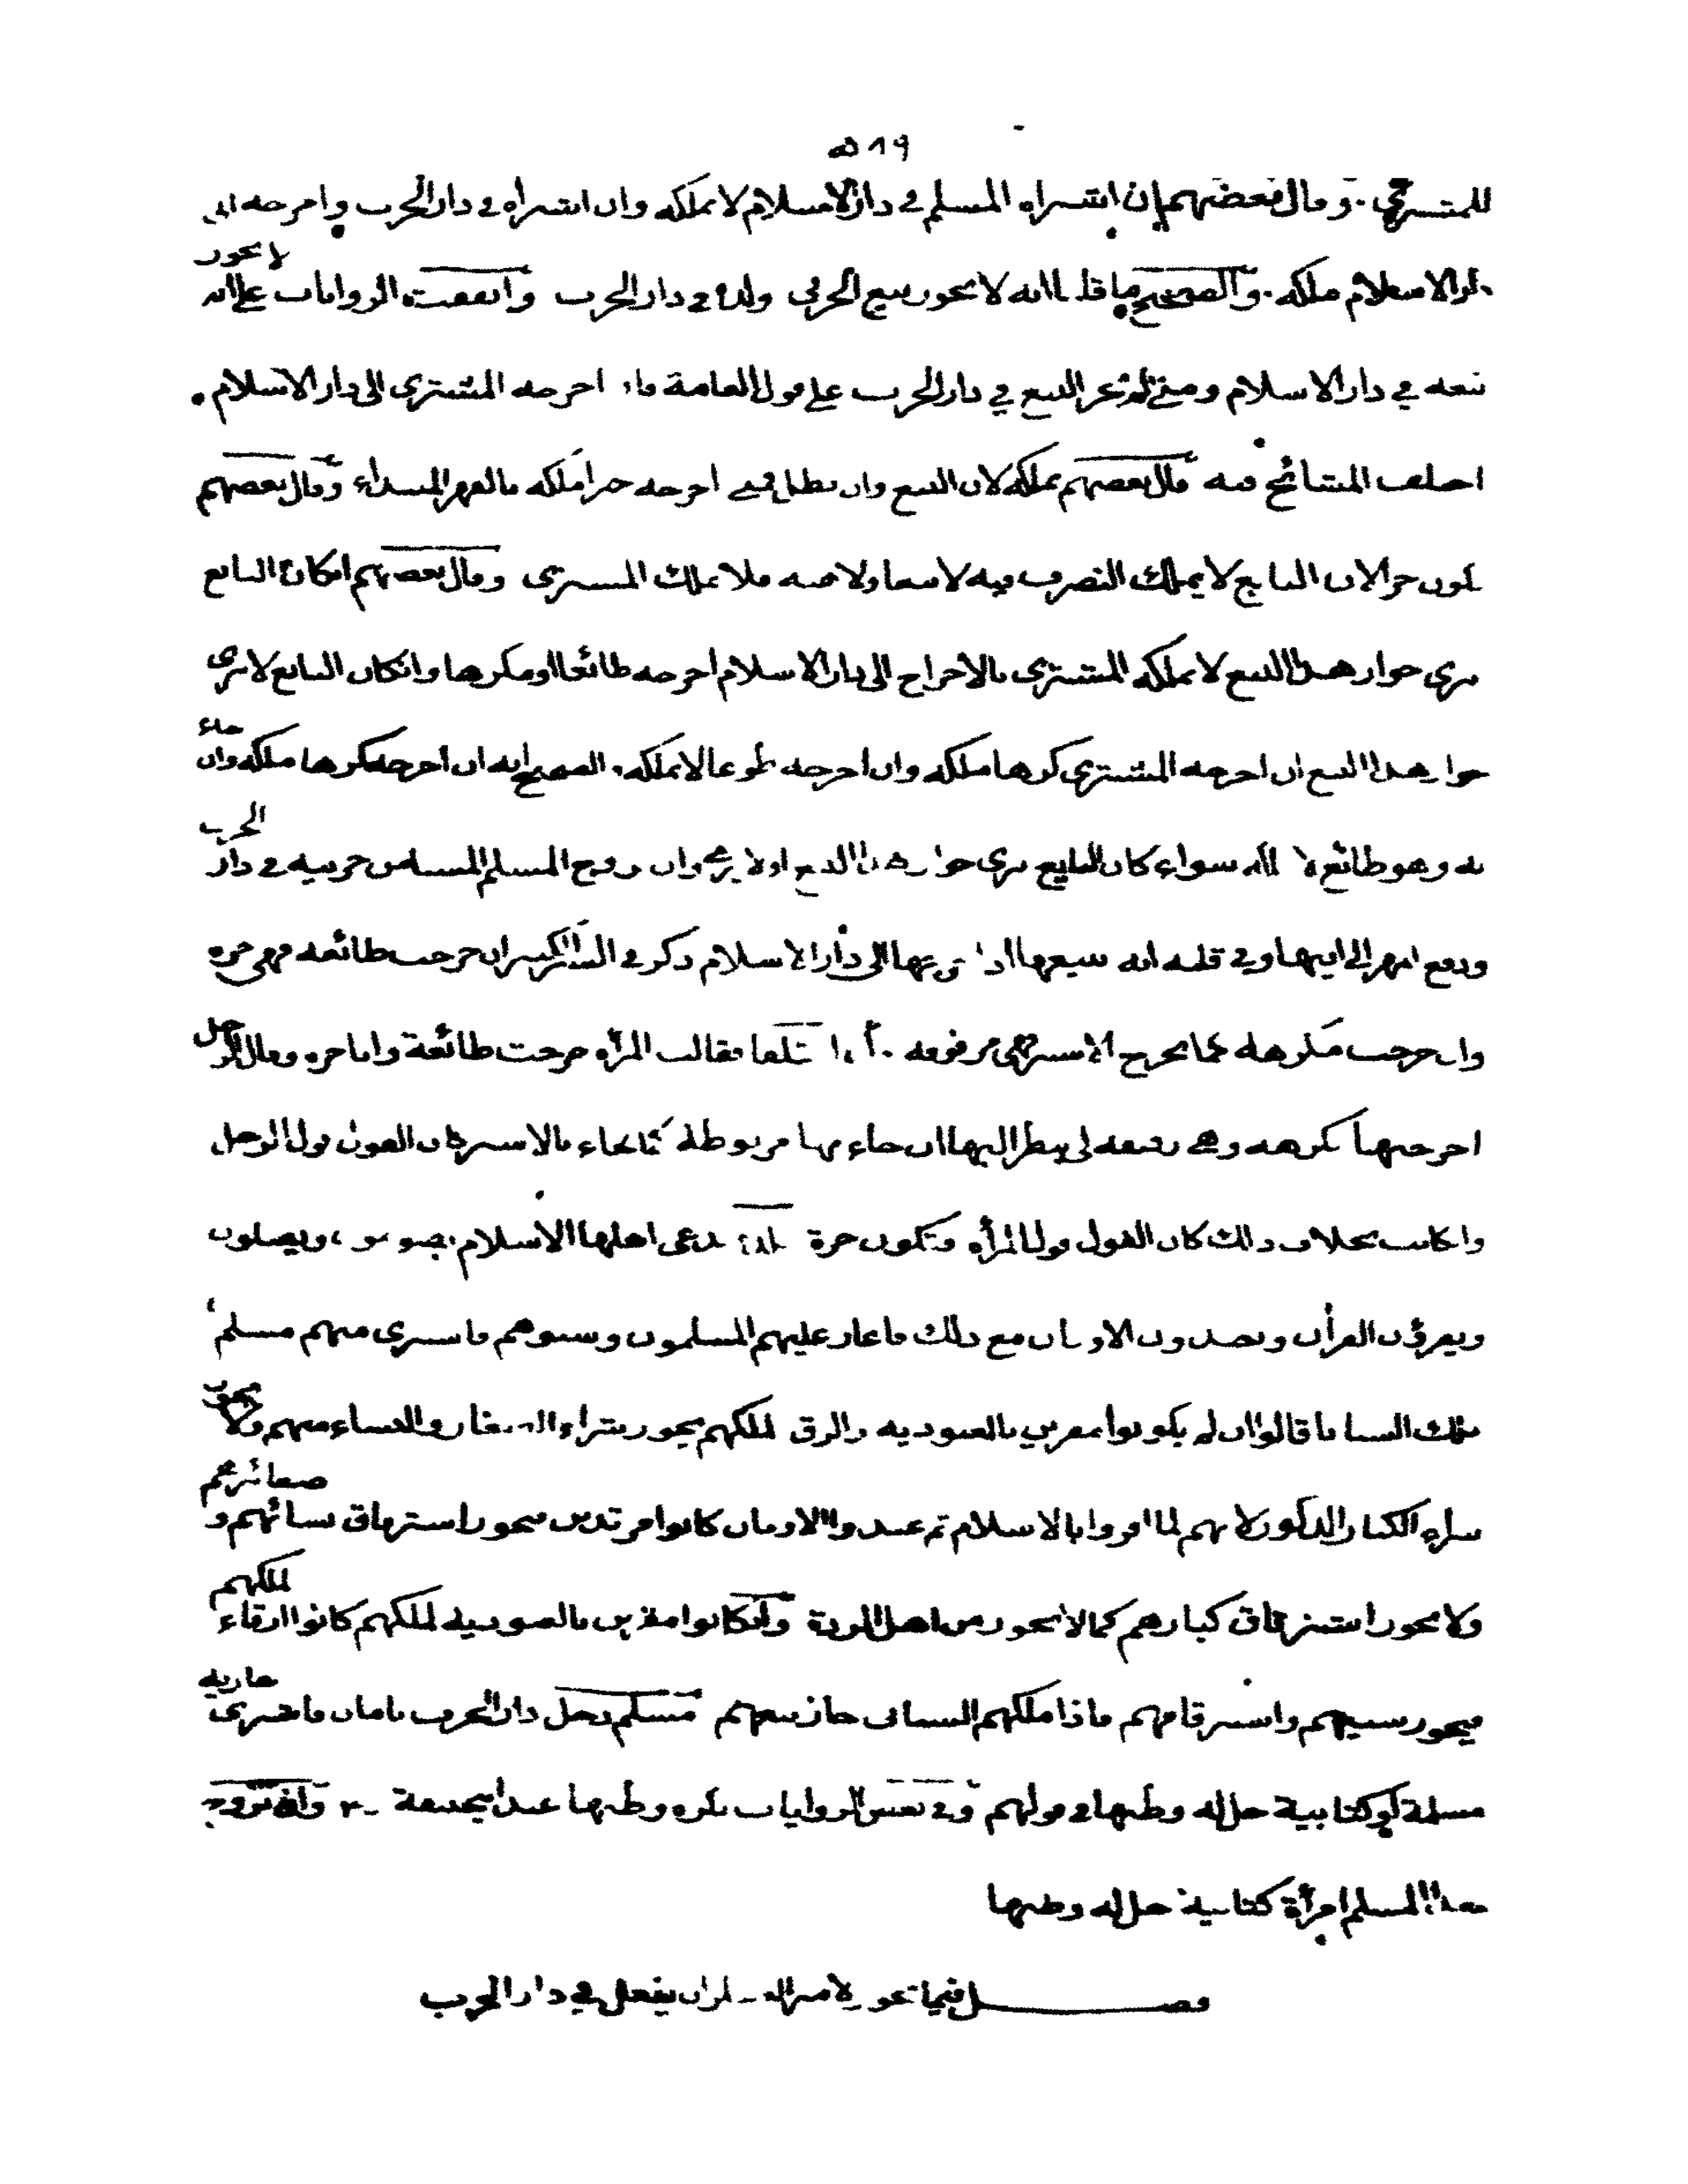 للمشتري وقال بعضهم إن اشتراه المسلم في دار الاسلام لا يملكه وان اشتراه في دار الحرب واخرجه الى
دار الاسلام ملكه والصحيح ما قلنا انه لا يجوز بيع الحربي ولده في دار الحرب واتفقت الروايات على انه لا يجوز
بيعه في دار الاسلام ومتى لم يجز البيع في دار الحرب على قول العامة فاذا اخرجه المشتري الى دار الاسلام
اختلف المشائخ فيه قال بعضهم يملكه لان البيع وان بطل فمتى اخرجه جبرا ملكه بالقهر ابتداء وقال بعضهم
يكون حرا لان البايع لا يملك التصرف فيه لا بيعا ولا هبة فلا يملك المشتري وقال بعضهم ان كان البايع
يرى جواز هذا البيع لا يملكه المشتري بالاخراج الى دار الاسلام اخرجه طائعا او مكرها وان كان البايع لا يرى
جواز هذا البيع ان اخرجه المشتري كرها ملكه وان اخرجه طوعا لا يملكه الصحيح انه ان اخرجه مكرها ملكه وان جاء
به وهو طائع لا سواء كان البايع يرى جواز هذا البيع او لا يرى وان تزوج المسلم حربية في دار الحرب
ودفع المهر الى ابيها وفي قلبه انه يبيعها اذا بها الى دار الاسلام ذكر في السير الكبير ان خرجت طائعة فهي حرة
وان خرجت مكرهة كما يخرج الاسير فهي مرقوقة فقالت المرأة خرجت طائعة وانا حرة وقال الرجل
اخرجتها كرهة وهي ينظر اليها ان جاء بها مربوطة كما جاء بالاسير كان القول قول الرجل
وان كانت بخلاف ذلك كان القول قول المرأة وتكون حرة يدعى اهلها الاسلام ويصلون
ويقرؤن القرآن ويعبدون الاوثان مع ذلك فاغار عليهم المسلمون وسبوهم فاشترى منهم مسلم
من تلك السبايا قالوا ان لم يكونوا مقرين بالعبودية والرق لملكهم يجوز شراء الصغار والنساء منهم ولا يجوز
شراء الكبار الذكور لانهم لما اقروا بالاسلام ثم عبدوا الاوثان كانوا مرتدين فيجوز استرقاق نسائهم و صغائرهم
ولا يجوز استرقاق كبارهم كما لا يجوز من اهل الردة وان كانوا مقرين بالعبودية لملكهم كانوا ارقاء لملكهم
فيجوز سبيهم واسترقاقهم فاذا ملكهم السابي جاز بيعهم مسلم دخل دار الحرب بامان فاشترى جارية
مسلمة او كتابية حل له وطئها في قولهم وفي بعض الروايات يكره وطئها عند ابي حنيفة وان تزوج
هذا المسلم امرأة كتابية حل له وطئها
فصل فيما يجوز يفعل في دار الحرب